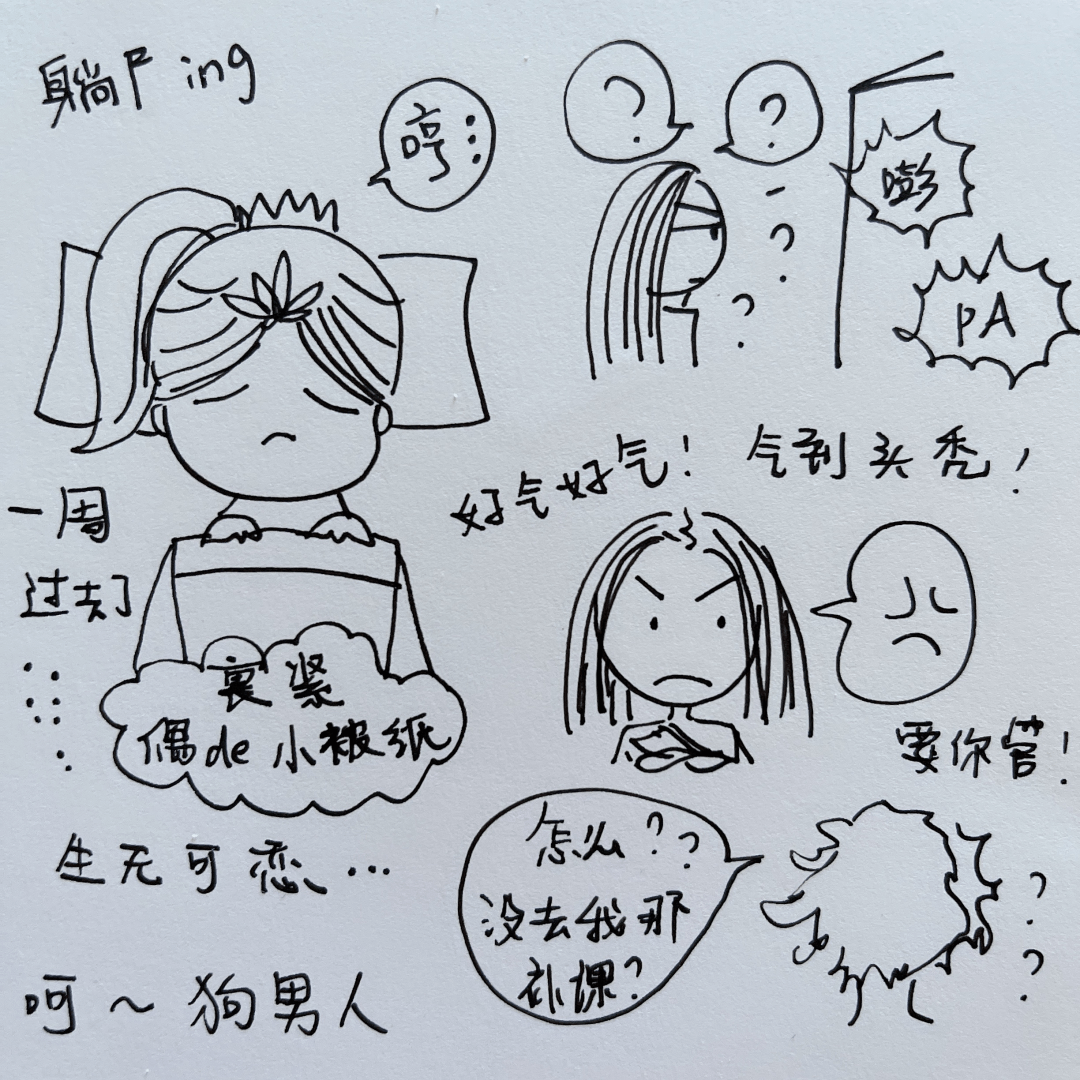 躺尸ing
哼...
一周
过去了
......
裹紧
偶de小被纸
生无可恋...
呵～狗男人
?
?
?
?
嘭
PA
好气好气！气到头秃！
要你管！
怎么??
没去我那
补课?
?
?